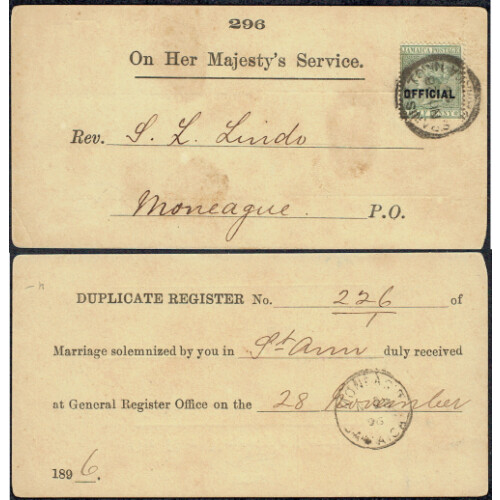 296
On Her Majesty's Service.
JAMAICA POSTAGE
OFFICIAL
Rev. S. L. Lindo
Moneague. P.O.
DUPLICATE REGISTER No. 226 of
1
Marriage solemnized by you in St Ann duly received
at General Register Office on the 28 November
MONEAGUE
96
JAMAICA
1896.